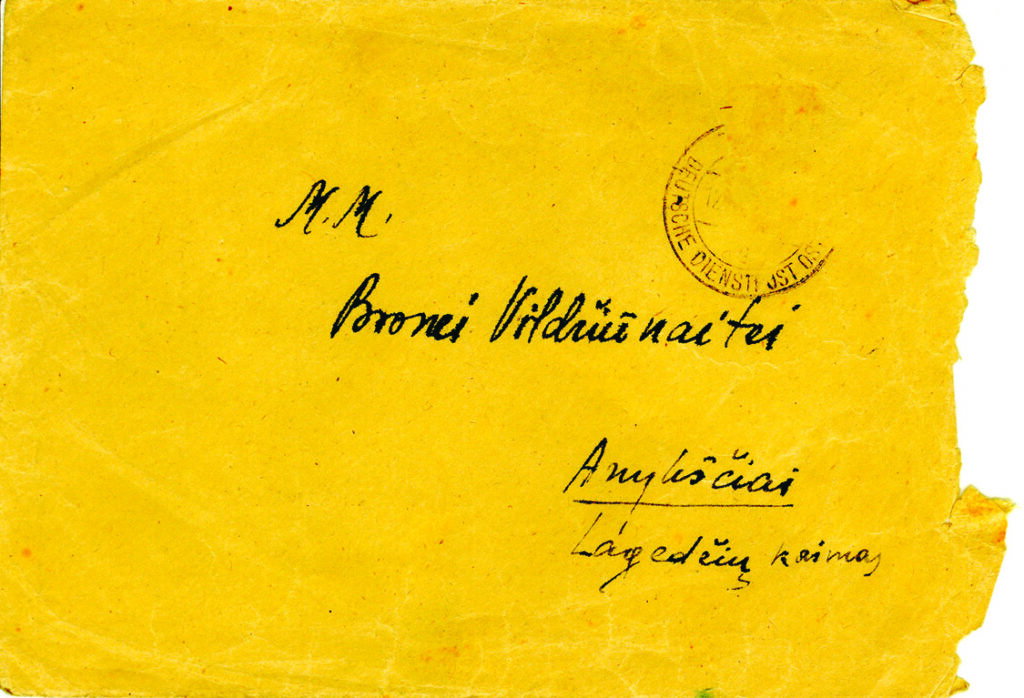 M. M.
DEUTSCHE DIENSTPOST OS
Bronei Vildžiūnaitei
Anykščiai
Lagedžių kaimas